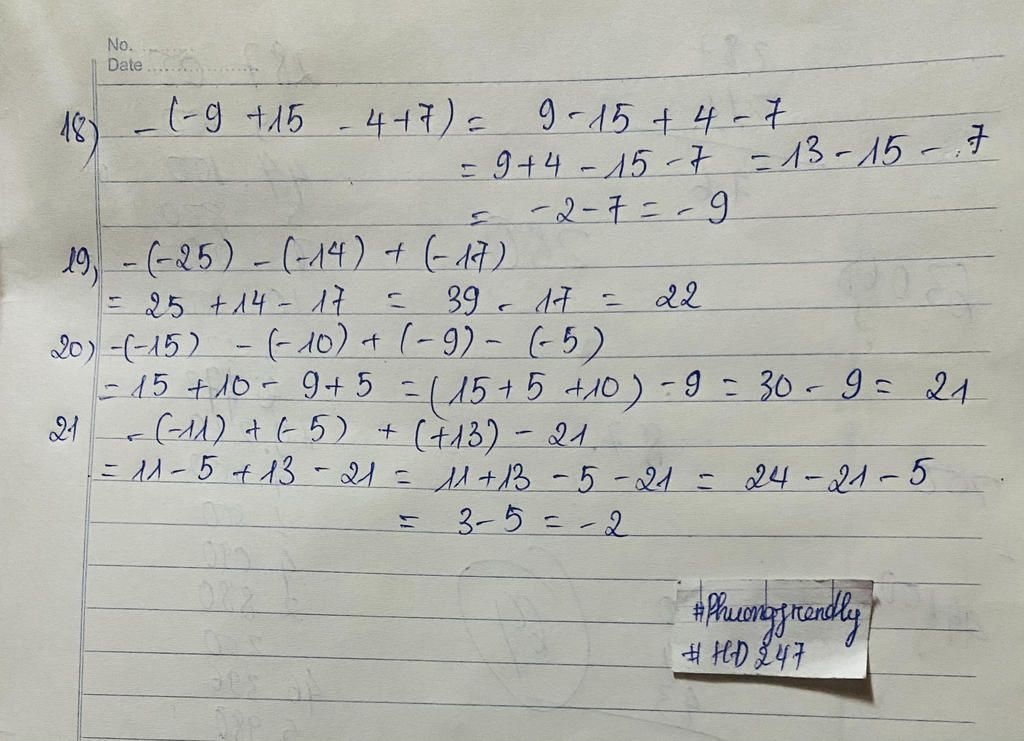 No. ............
Date ....................
18) - (-9 +15 - 4+7) = 9 - 15 + 4 - 7
= 9+4 - 15 - 7 = 13 - 15 - 7
= -2 - 7 = - 9
19, - (-25) - (-14) + (-17)
= 25 + 14 - 17 = 39 - 17 = 22
20) -(-15) - (-10) + (-9) - (-5)
= 15 + 10 - 9 + 5 = (15 + 5 + 10) - 9 = 30 - 9 = 21
21 - (-11) + (-5) + (+13) - 21
= 11 - 5 + 13 - 21 = 11 + 13 - 5 - 21 = 24 - 21 - 5
= 3 - 5 = - 2
#Phuongfrendly
# HD 247